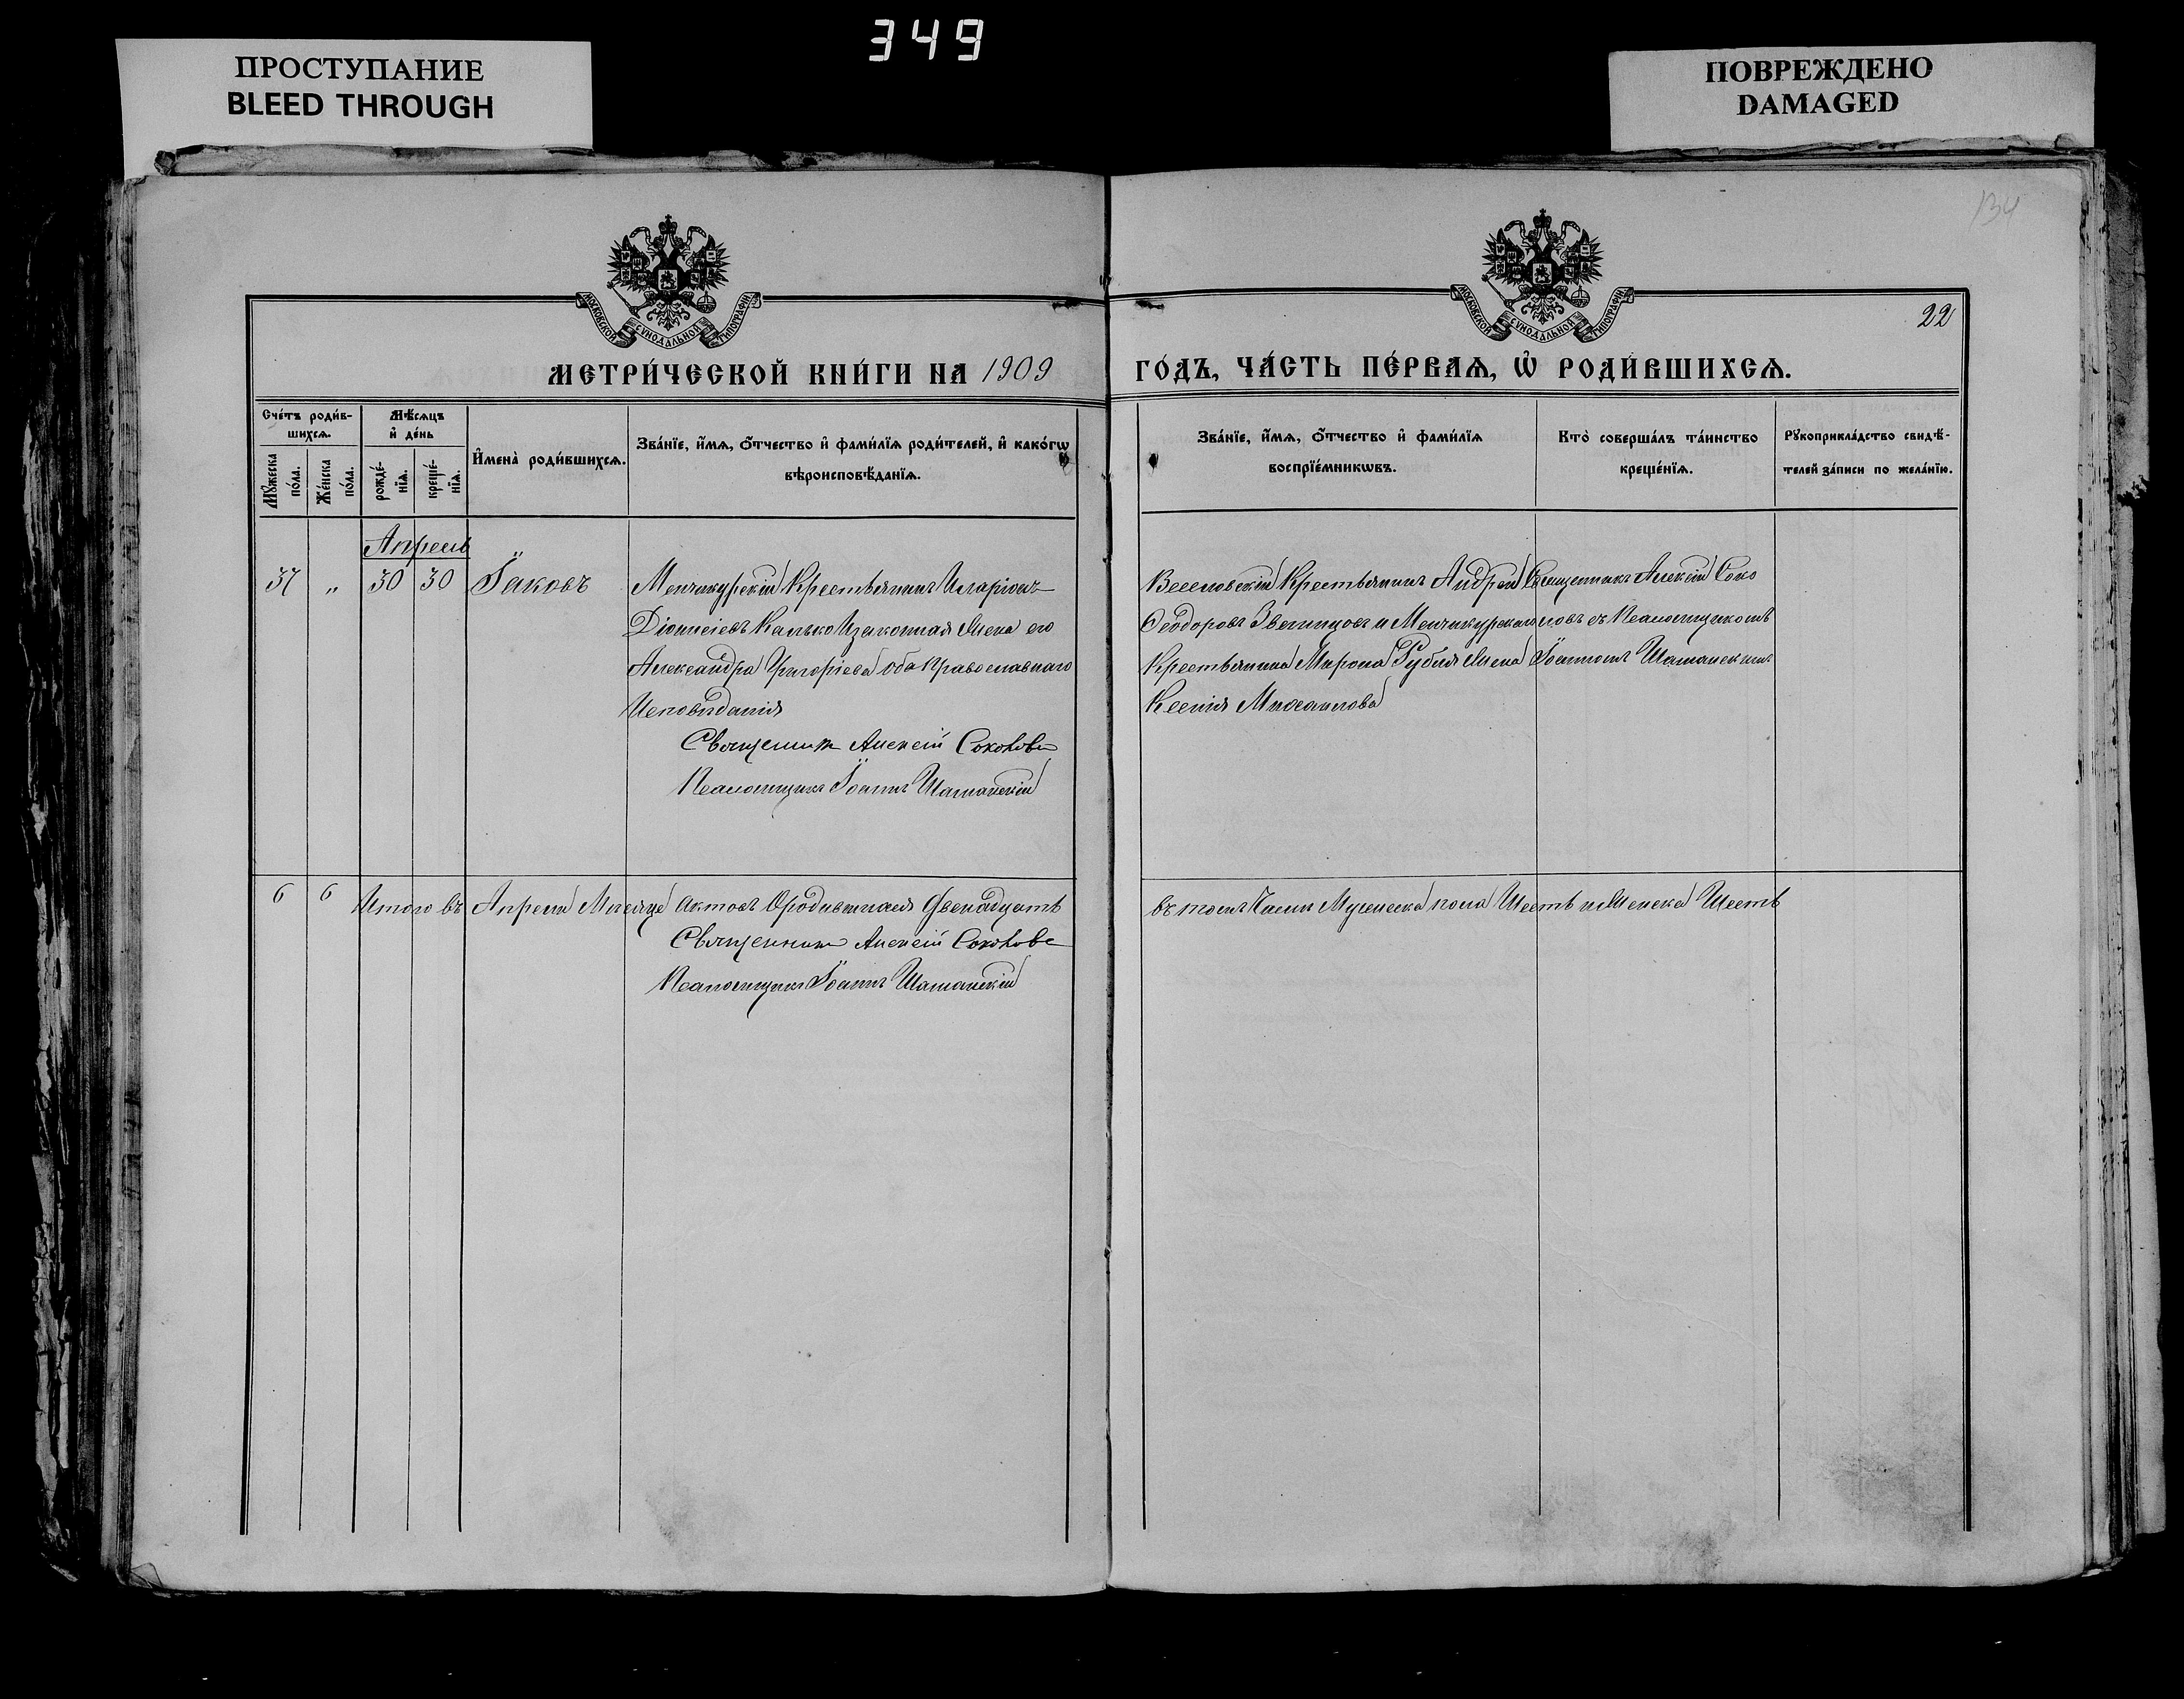 349
ПРОСТУПАНИЕ
BLEED THROUGH
ПОВРЕЖДЕНО
DAMAGED
134
22
МОСКОВСКОЙ СѴНОДАЛЬНОЙ ТИПОГРАФІИ
МОСКОВСКОЙ СѴНОДАЛЬНОЙ ТИПОГРАФІИ
МЕТРИ́ЧЕСКОЙ КНИ́ГИ НА 1909
ГО́ДЪ, ЧА́СТЬ ПЕ́РВАѦ, Ѡ҆ РОДИ́ВШИХСѦ.
Сче́тъ роди́в-
шихсѧ.
Мꙋ́жеска по́ла.
Же́нска по́ла.
Мѣ́сѧцъ
и҆ де́нь
рожде́-
нїѧ.
креще́-
нїѧ.
И҆мена̀ роди́вшихсѧ.
Зва́нїе, и҆́мѧ, ѻ҆́тчество и҆ фами́лїѧ роди́телей, и҆ како́гѡ
вѣроисповѣ́данїѧ.
Зва́нїе, и҆́мѧ, ѻ҆́тчество и҆ фами́лїѧ
воспрїе́мникѡвъ.
Кто̀ соверша́лъ та́инство
креще́нїѧ.
Рꙋкоприкла́дство свидѣ́-
телей за́писи по жела́нїю.
Апрель
37 „ 30 30 Іаковъ
Менчикурскій Крестьянинъ Иларіонъ
Діонисіевъ Калько Изаконная Жена его
Александра Григоріева оба Православнаго
Исповѣданія
Священникъ Алексій Соколовъ
Псаломщикъ Іоаннъ Шаманскій
Веселовскій Крестьянинъ Андрей
Ѳеодоровъ Звеницовъ и Менчикурскаго
Крестьянина Мирона Рубля Жена
Ксенія Михаилова
Священникъ Алексій Соко
ловъ съ Псаломщикомъ
Іоанномъ Шаманскимъ
6 6 Итого въ Апрелѣ Месяцѣ Актовъ Ородившихся Двенадцать
въ томъ Числѣ Мужеска пола Шесть и Женска Шесть
Священникъ Алексій Соколовъ
Псаломщикъ Іоаннъ Шаманскій